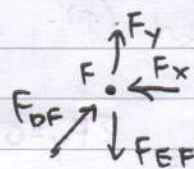 F_Y
F F_X
F_DF
F_EF